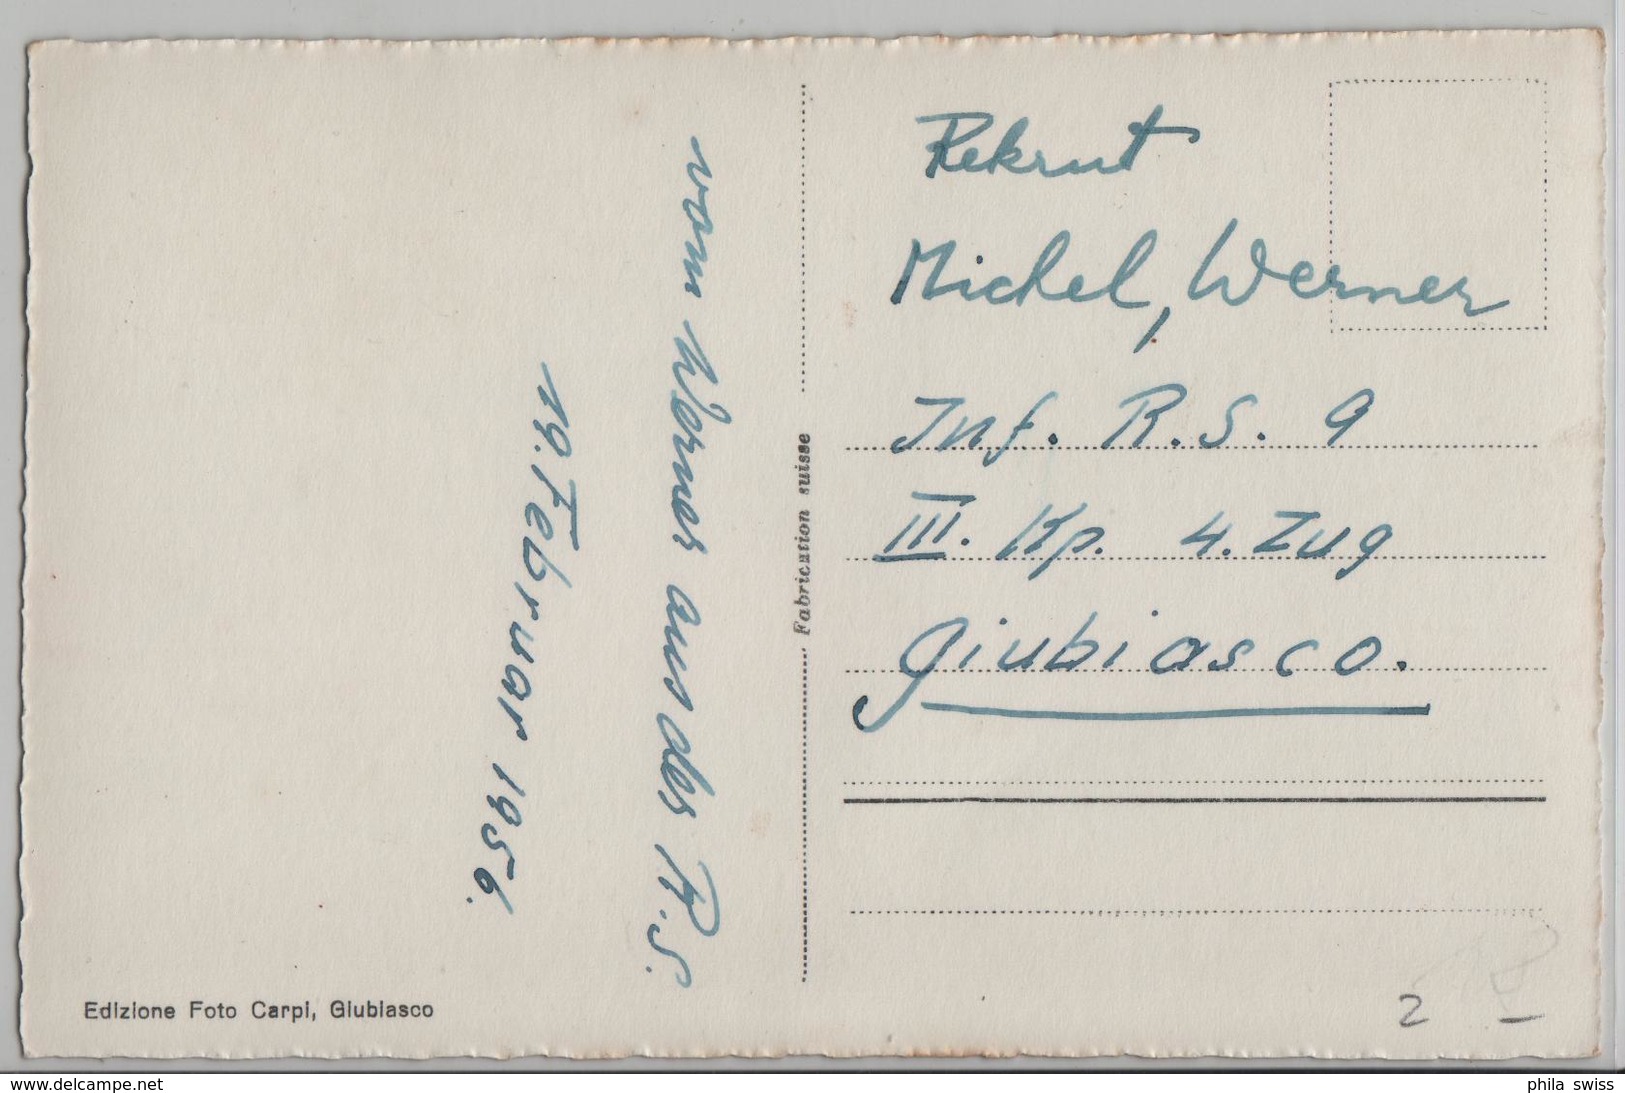 vom Werner aus der R.S.
19. Februar 1956.
Edizione Foto Carpi, Giubiasco
Fabrication suisse
Rekrut
Michel, Werner
Inf. R.S. 9
III. Kp. 4. Zug
Giubiasco.
2 —
www.delcampe.net
phila swiss